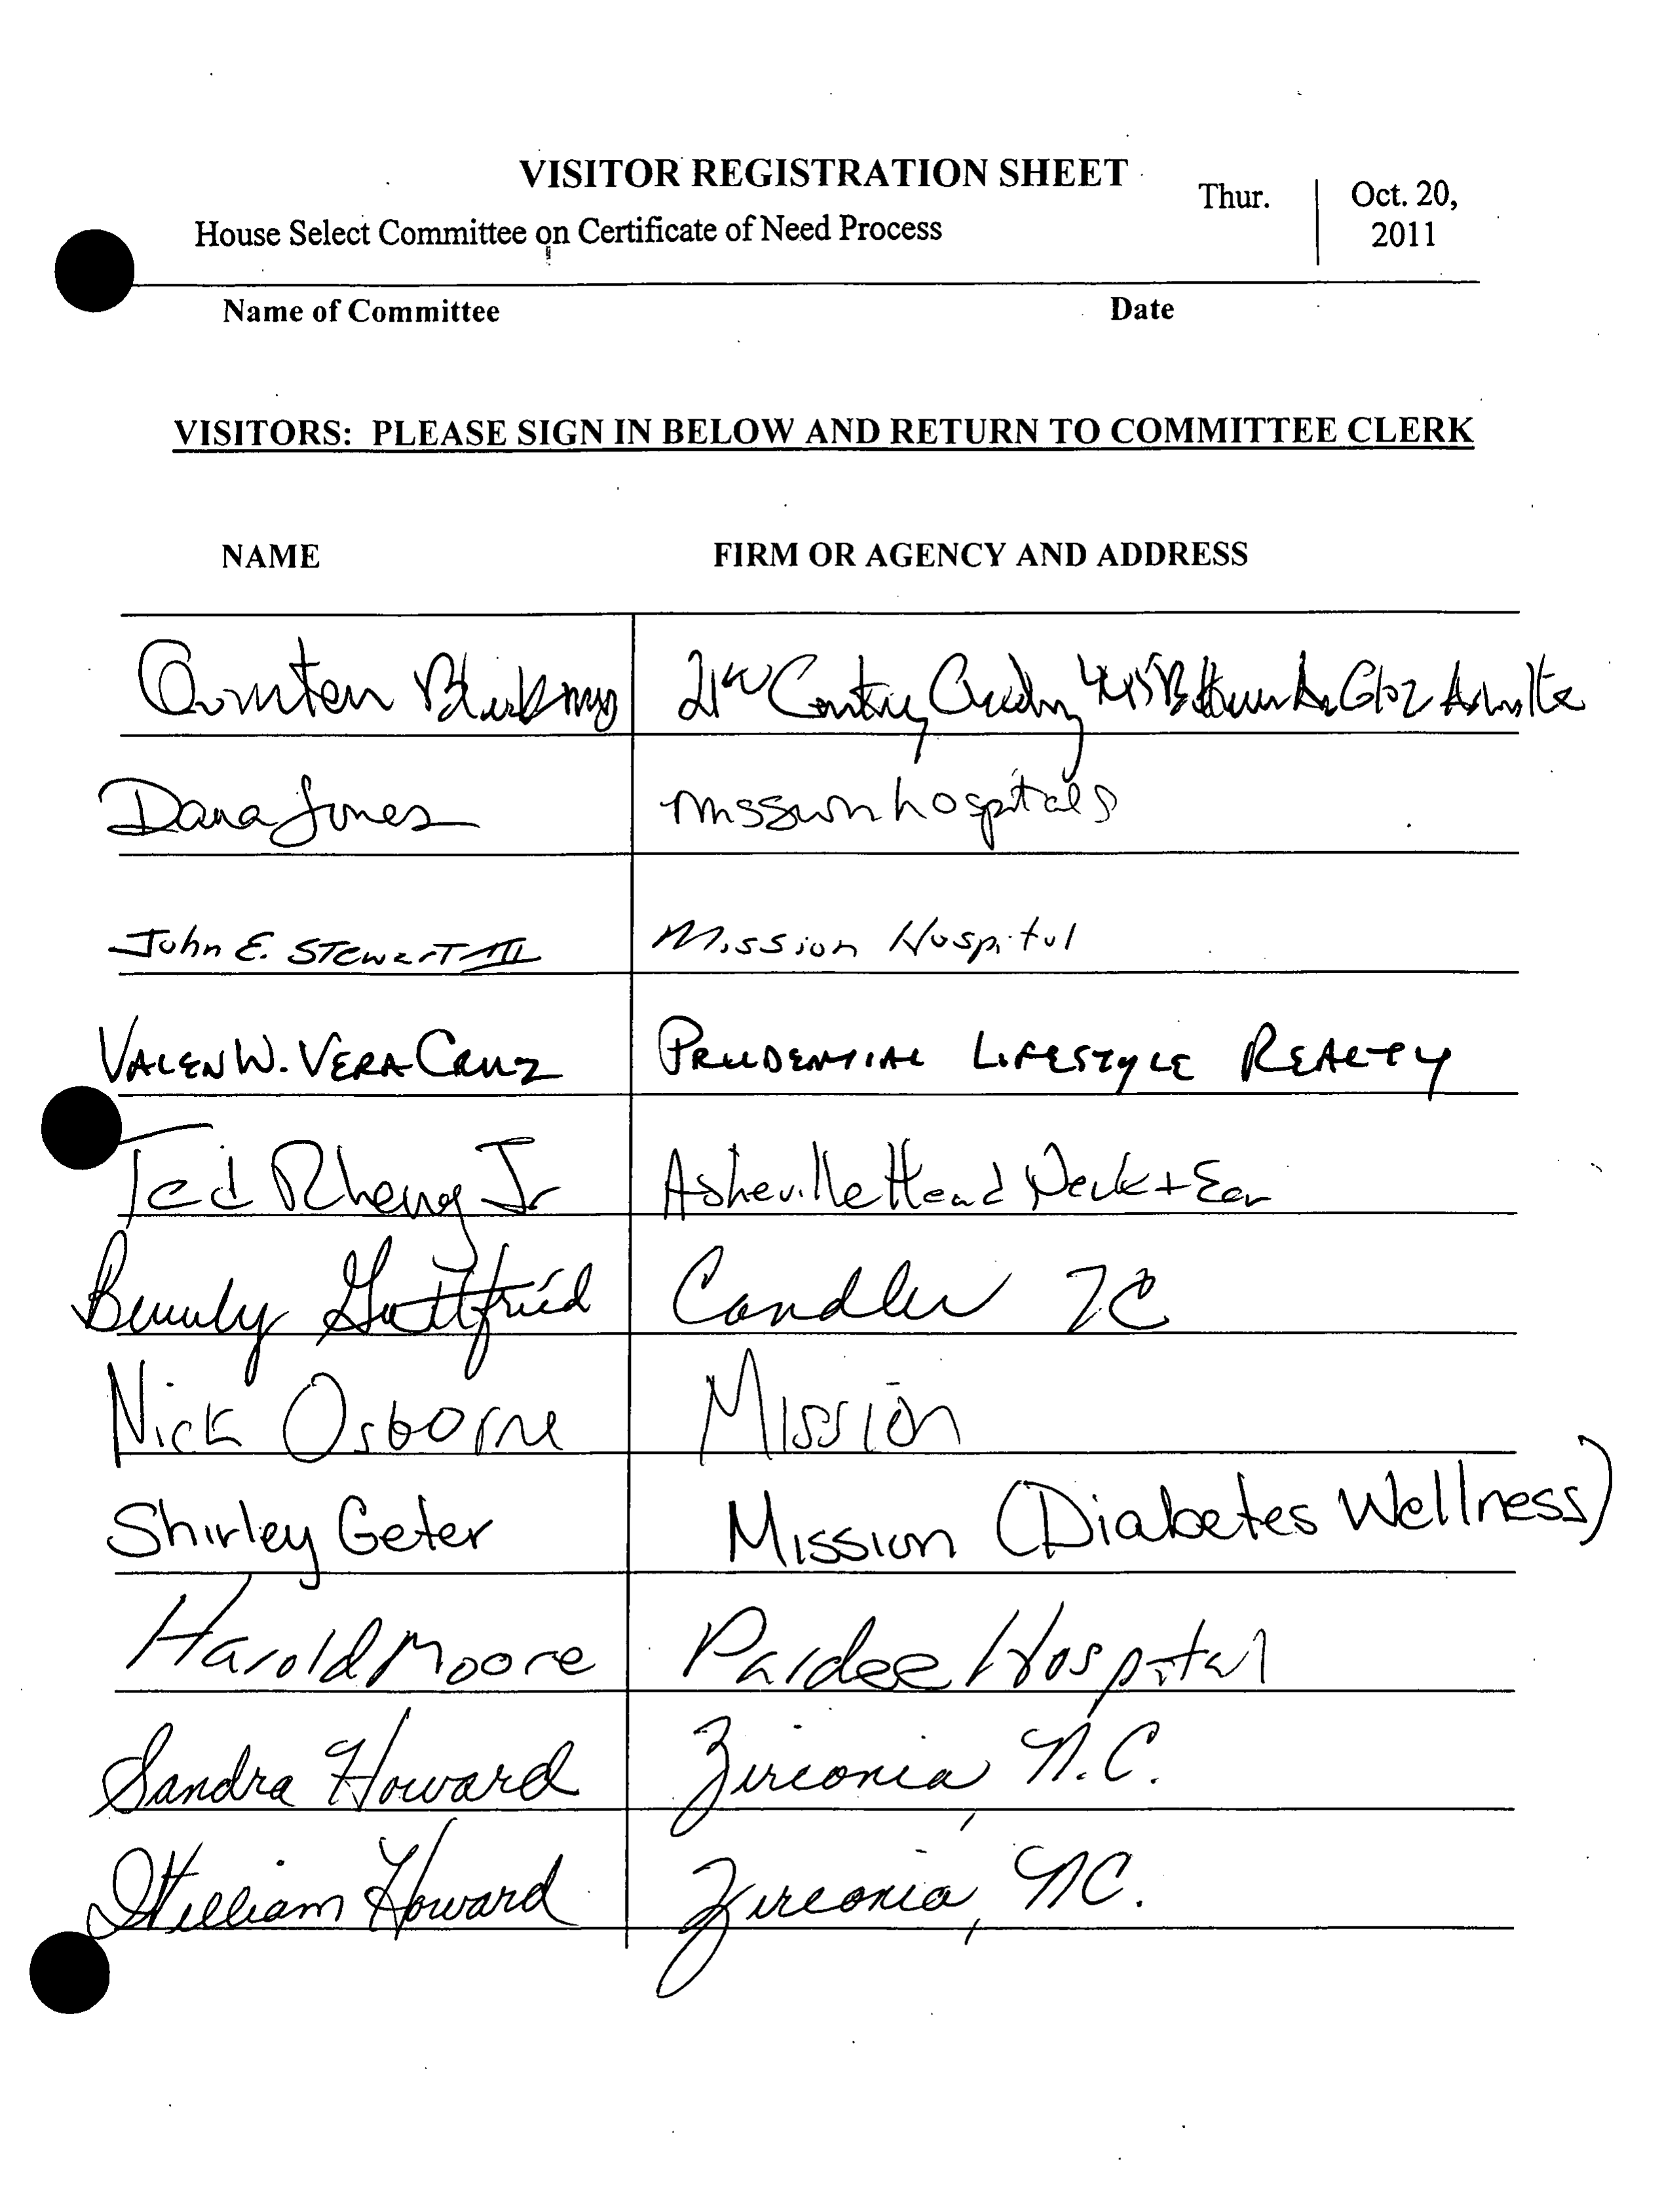 VISITOR REGISTRATION SHEET
Thur. Oct. 20,
House Select Committee on Certificate of Need Process 2011
Name of Committee Date
VISITORS: PLEASE SIGN IN BELOW AND RETURN TO COMMITTEE CLERK
NAME FIRM OR AGENCY AND ADDRESS
21st Century
Dana Jones Mission hospitals
John E. Stewart III Mission Hospital
VALEN W. VERA CRUZ PRUDENTIAL LIFESTYLE REALTY
Ted Rheney Jr Asheville Head Neck + Ear
Beverly Gottfried Candler NC
Nick Osborne Mission
Shirley Geter Mission (Diabetes Wellness)
Harold Moore Pardee Hospital
Sandra Howard Zirconia, N.C.
William Howard Zirconia, NC.